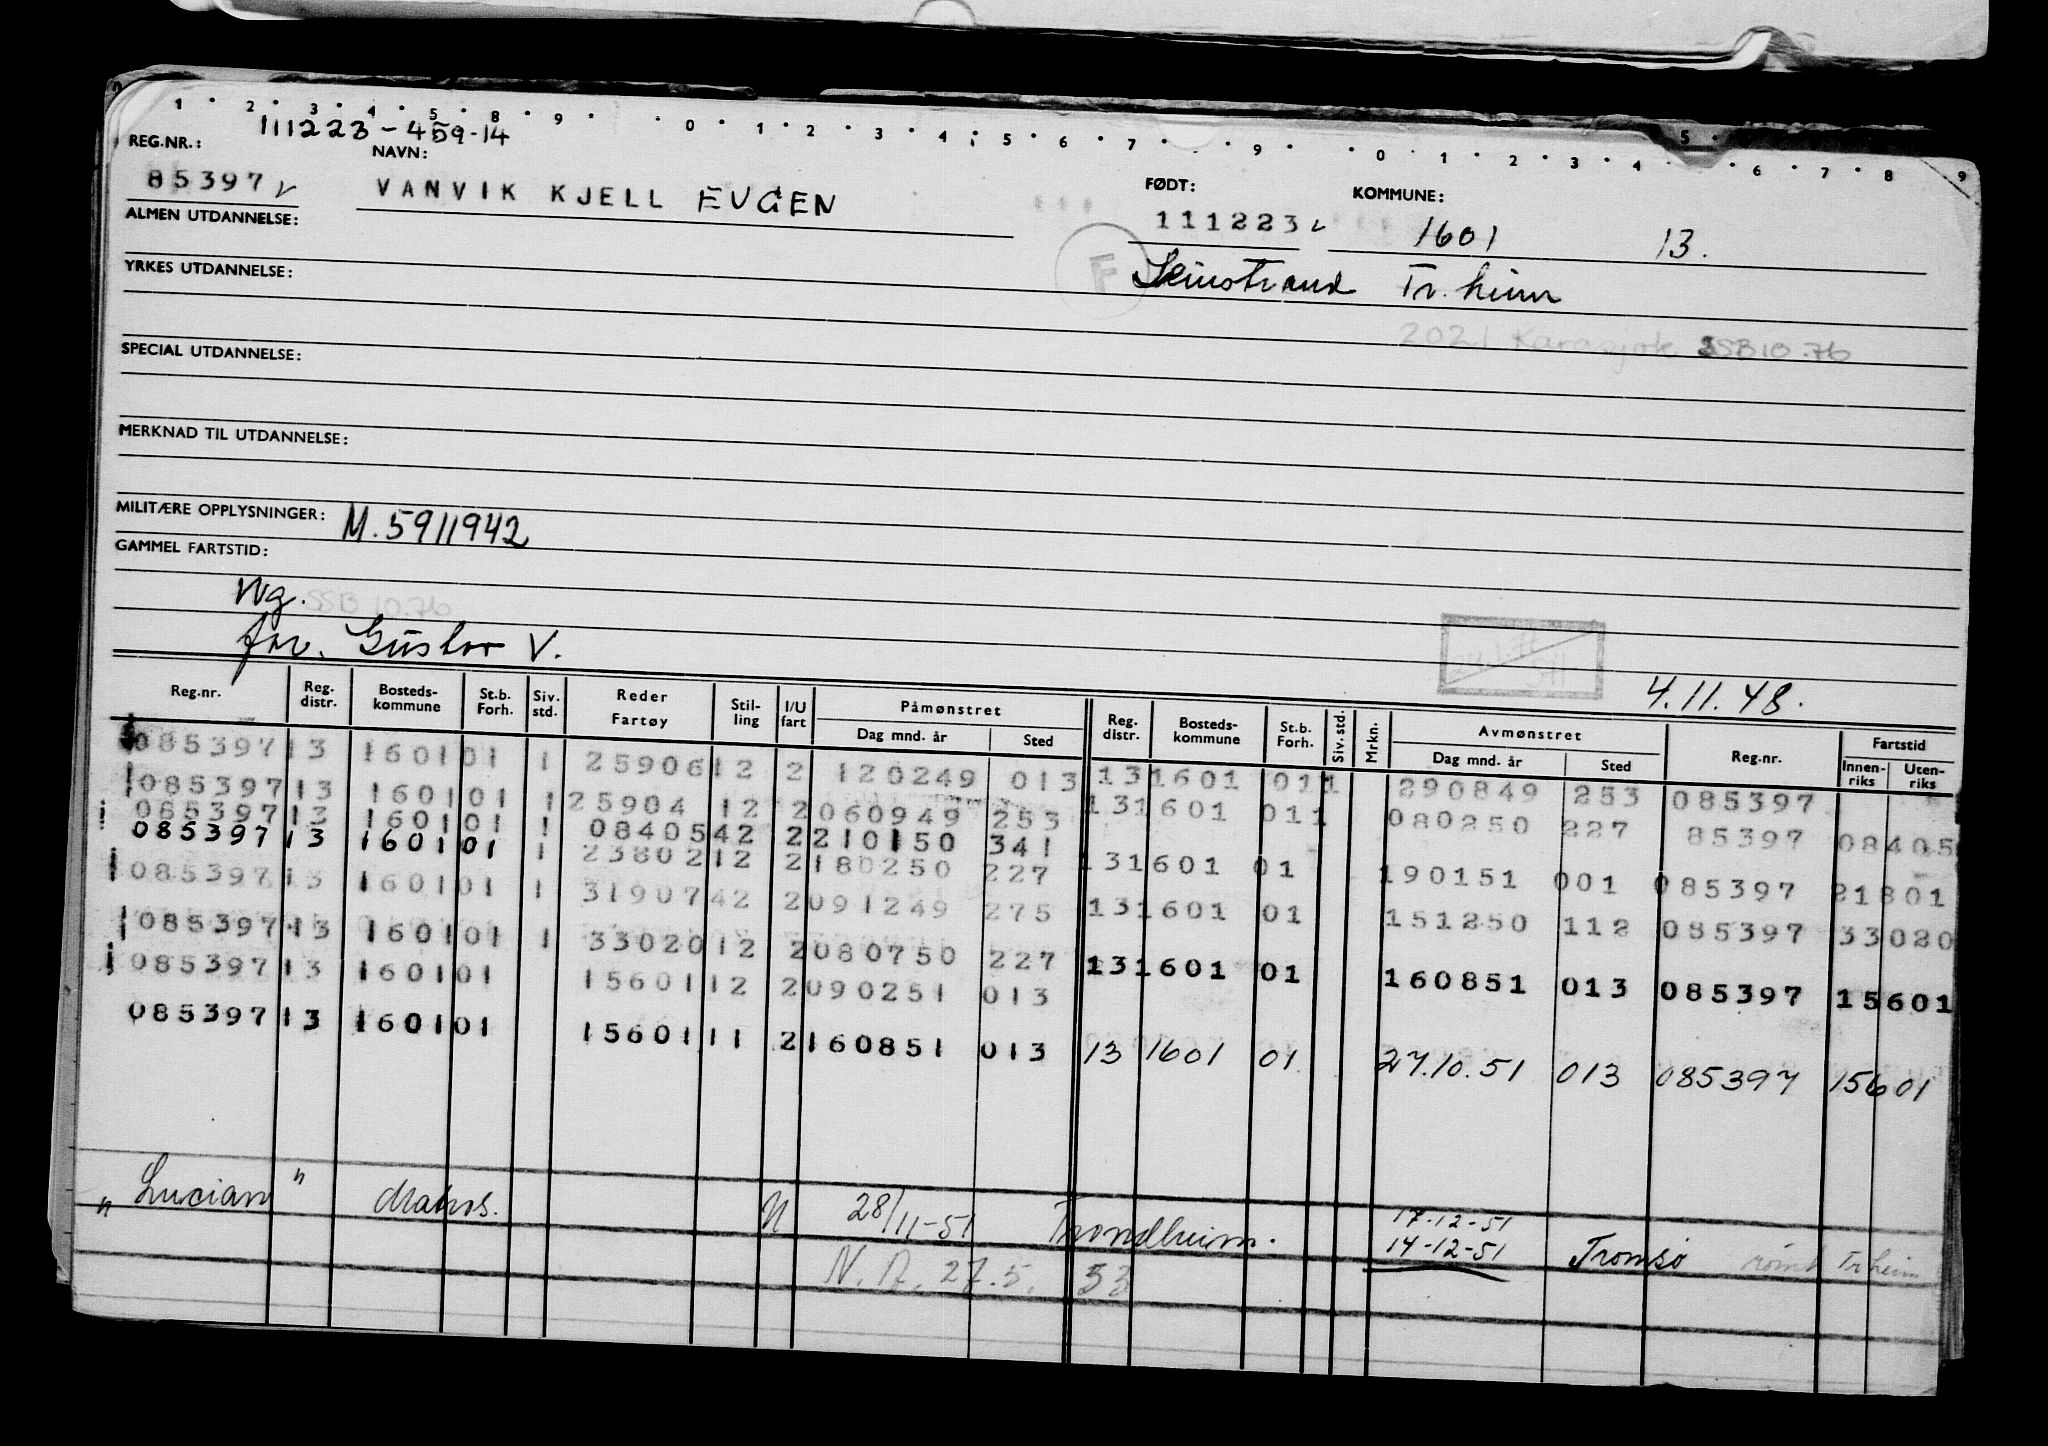 1 2 3 4 5 8 9 0 1 2 3 4 5 6 7 9 0 1 2 3 4 5 6 7 8 9
111223-459-14
REG.NR.: NAVN: FØDT: KOMMUNE:
85397 VANVIK KJELL EUGEN 111223 1601 13.
ALMEN UTDANNELSE:
F Leinstrand Tr.heim
YRKES UTDANNELSE:
2021 Karasjok SSB 10.76
SPECIAL UTDANNELSE:
MERKNAD TIL UTDANNELSE:
MILITÆRE OPPLYSNINGER: M. 5911942
GAMMEL FARTSTID:
Ug. SSB 10.76
far. Gustav V.
4.11.48.
Reg.nr. Reg. distr. Bosteds- kommune St.b. Forh. Siv. std. Reder Fartøy Stil- ling I/U fart Påmønstret Dag mnd. år Sted Reg. distr. Bosteds- kommune St.b. Forh. Siv. std. Mrkn. Avmønstret Dag mnd. år Sted Reg.nr. Fartstid Innen- riks Uten- riks
085397 13 1601 01 1 25906 12 2 120249 013 13 1601 01 1 290849 253 085397
085397 13 1601 01 1 25904 12 2 060949 253 13 1601 01 1 080250 227 85397 08405
085397 13 1601 01 1 08405 42 2 210150 341
085397 13 1601 01 1 23802 12 2 180250 227 13 1601 01 190151 001 085397 21801
085397 13 1601 01 1 31907 42 2 091249 275 13 1601 01 151250 112 085397 33020
085397 13 1601 01 1 33020 12 2 080750 227 13 1601 01 160851 013 085397 15601
085397 13 1601 01 15601 12 2 090251 013
085397 13 1601 01 15601 11 2 160851 013 13 1601 01 27.10.51 013 085397 15601
" Lucian " Matros. U 28/11-51 Trondheim. 17-12-51
14-12-51 Tromsø rømt Trheim
N.A. 27.5. 53